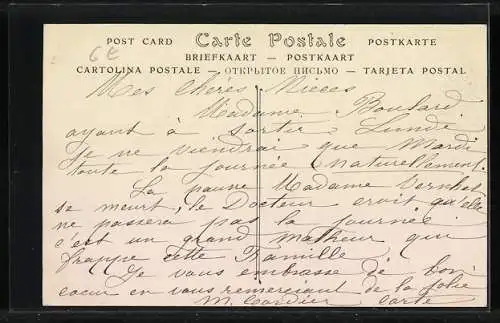 6€
POST CARD Carte Postale POSTKARTE
BRIEFKAART — POSTKAART
CARTOLINA POSTALE — ОТКРЫТОЕ ПИСЬМО — TARJETA POSTAL
Mes Chéres Nieces
Madame Boulard
ayant à sortir Lundi
je ne viendrai que Mardi
toute la journée (naturellement.
La pauvre Madame Vernhet
se meurt, le Docteur croit qu'elle
ne passera pas la journée
c'est un grand malheur qui
frappe cette Famille.
Je vous embrasse de bon
coeur en vous remerciant de la jolie
M. Cordier carte